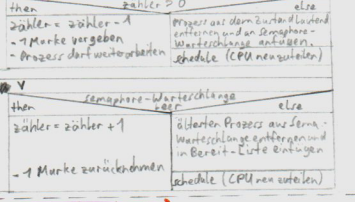 zähler > 0
then
else
zähler = zähler - 1
- 1 Marke vergeben
- Prozess darf weiterarbeiten
Prozess aus dem Zustand laufend
entfernen und an Semaphore-
Warteschlange anfügen.
schedule (CPU neu zuteilen)
V
Semaphore-Warteschlange
leer
then
else
zähler = zähler + 1
- 1 Marke zurücknehmen
ältesten Prozess aus Sema.-
Warteschlange entfernen und
in Bereit-Liste einfügen
schedule (CPU neu zuteilen)